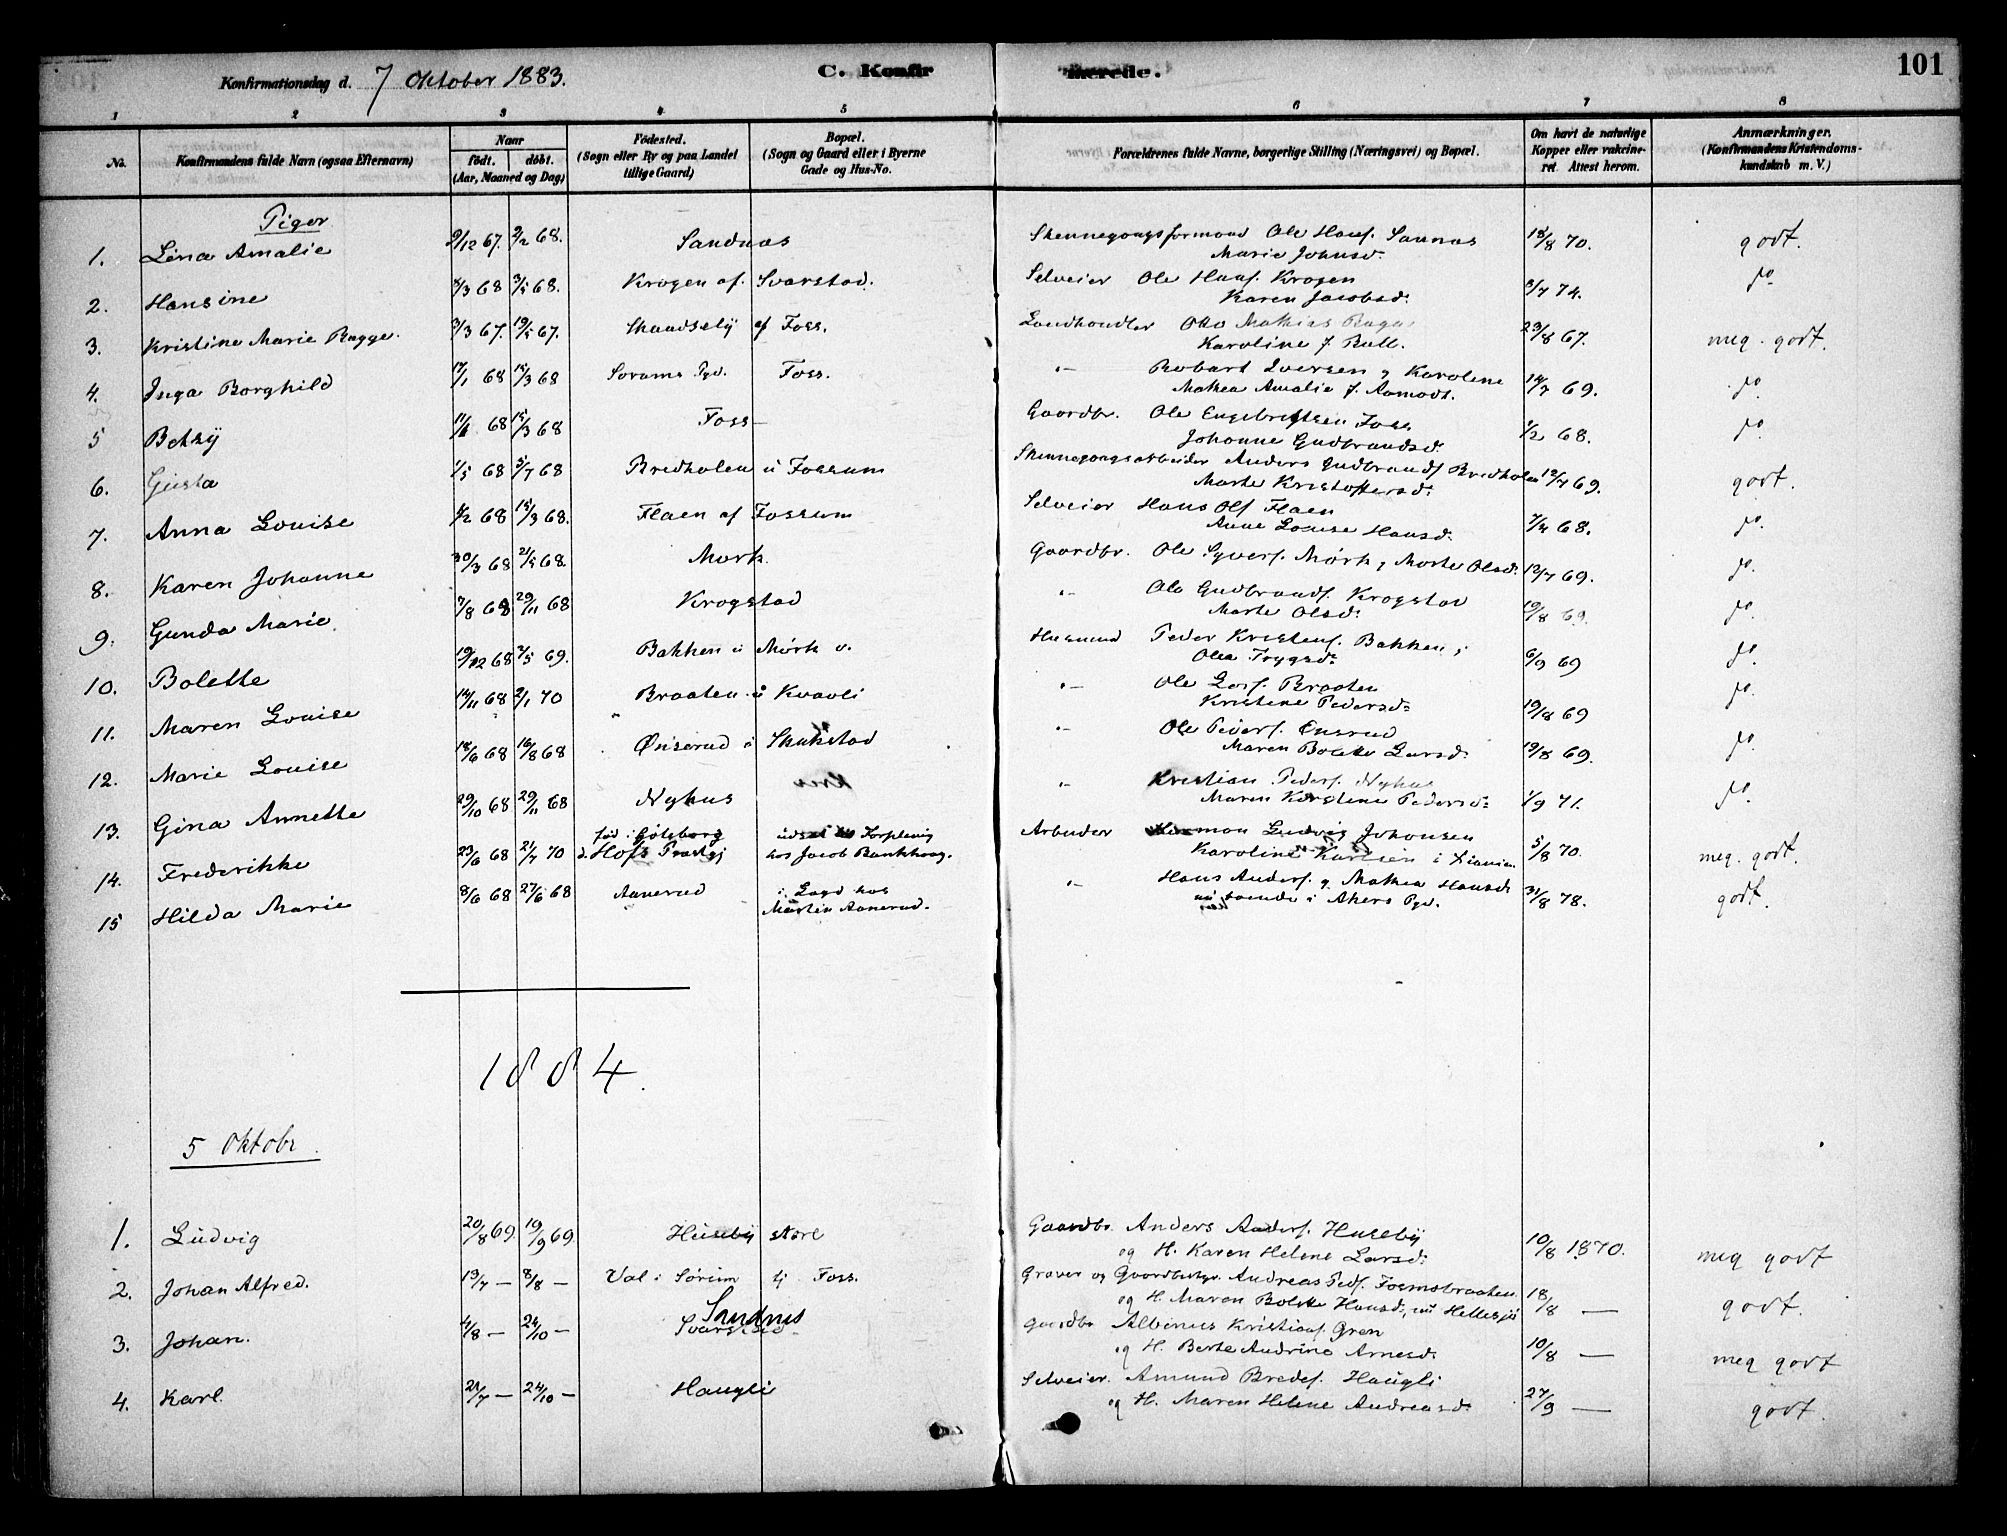 Konfirmationsdag d. 7 Oktober 1883.
C. Konfirmerede.
101
1 2 3 4 5 6 7 8
No. Konfirmandens fulde Navn (ogsaa Efternavn) Naar født. døbt. (Aar, Maaned og Dag) Fødested. (Sogn eller By og paa Landet tillige Gaard) Bopæl. (Sogn og Gaard eller i Byerne Gade og Hus-No. Forældrenes fulde Navne, borgerlige Stilling (Næringsvei) og Bopæl. Om havt de naturlige Kopper eller vakcineret. Attest herom. Anmærkninger. (Konfirmandens Kristendomskundskab m. V.)
Piger
1. Lina Amalie 9/12 67. 2/2 68. Sandnæs Ole Hansf. Sannæs 18/8 70. godt.
Marie Johnsd.
2. Hansine 8/3 68 3/5 68. Krogen af Svarstad. Selveier Ole Hansf. Krogen 74. do
Karen Jacobsd.
3. Kristine Marie Bugge. 3/3 67. 19/5 67. af Foss. Landhandler Otto Mathias 23/8 67. meg. godt.
Karoline f. Bull.
4. Inga Borghild 17/1 68 15/3 68 Sørums Pgd. Foss. "– Robart Iversen og Karoline 14/7 69. do.
Mathea Amalie f. Aamodt.
5 Betsy 68 15/3 68 Foss Gaardbr. Ole Engebretsen Foss 1/2 68. do
Johanne Gudbrandsd.
6. Gusta 1/5 68 5/7 68 Bredholen u Fossum Anders Gudbrandf Bredholen 12/7 69. godt.
Marte Kristoffersd.
7. Anna Louise 6/2 68 15/3 68. Flaen af Fossum Selveier Hans Olf Flaen 68. do.
Anne Louise Hansd.
8. Karen Johanne 30/3 68 21/5 68. Mørk. Gaardbr. Ole Syverf. Mørk, Marte Olsd. 12/7 69. do.
9. Gunda Marie 7/8 68 29/11 68 Krogstad "– Ole Gudbrandf. Krogstad 19/8 69. do.
Marte Olsd.
10. Bolette 19/12 68 2/5 69. Bakken u Mørk v. Husmand Peder Kristenf. Bakken, 6/9 69 do.
Olea Trygsd.
11. Maren Louise 14/11 68 2/1 70 Braaten u Kvavli "– Ole Larf. Braaten 19/8 69 do.
Kristine Pedersd.
12. Marie Louise 18/6 68 16/8 68 Ønserud u Skakstad "– Ole Pederf. Ønsrud 19/8 69. do.
Maren Bolette Larsd.
13. Gina Annette 29/10 68 29/11 68 Nyhus "– Kristian Pederf. Nyhus 1/9 71. do.
Maren Kirstine Pedersd.
14. Frederikke 23/6 68 21/7 70 fød i Göteborg d. Hofs Prestgj hos Jacob Arbeider Herman Ludvig Johansen 5/8 70. meg. godt.
Karoline Karlsen i Xiania
15 Hilda Marie 8/6 68 27/6 68 Aanerud i Lagd hos Martin Aanerud. "– Hans Anderf. og Mathea Hansd. 31/8 78. godt.
nu boende i Akers Pgd.
1884.
5 Oktobr.
1. Ludvig 20/8 69. 19/9 69. Huseby store Gaardbr. Anders Anderf. Huseby 10/8 1870. meg godt
og H. Karen Helene Larsd.
2. Johan Alfred. 19/7 – 8/8 – Val i Sørum Foss. Graver og Andreas Pedf. Foemsbraaten 18/8 — godt.
og H. Maren Bolette Hansd, nu Hellesjø
3. Johan. 4/8 – 24/10 – Sandnes Svarstad Gaardbr Albinus Kristianf. Gren 10/8 — meg godt
og H. Berte Andrine Arnesd.
4. Karl. 21/7 – 24/10 – Haugli Selveier. Amund Bredef. Haugli 27/9 — godt.
og H. Maren Helene Andreasd.